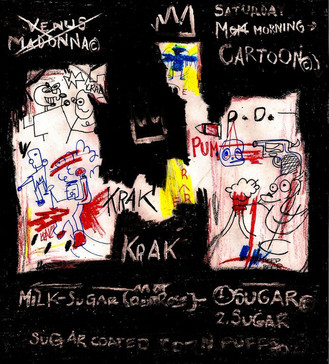 VENUS
MADONNA©
SATURDAY
MORNING→
CARTOON©
KRAK
P.D.
PUM
KRAK
KRAK
MILK-SUGAR
①SUGAR©
2. SUGAR
SUGAR COATED PUFFS